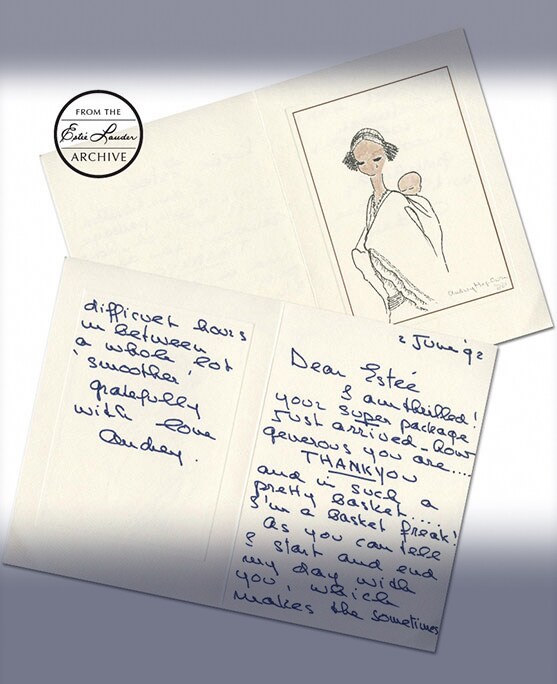 FROM THE
Estée Lauder
ARCHIVE
Audrey Hepburn
2 June '92
Dear Estée
I am thrilled!
your super package
just arrived - how
generous you are....
THANKYOU
and in such a
pretty basket.....
I'm a basket freak!
As you can tell
I start and end
my day with
'you', which
makes the sometimes
difficult hours
in between
a whole lot
'smoother'
gratefully
with love
Audrey.